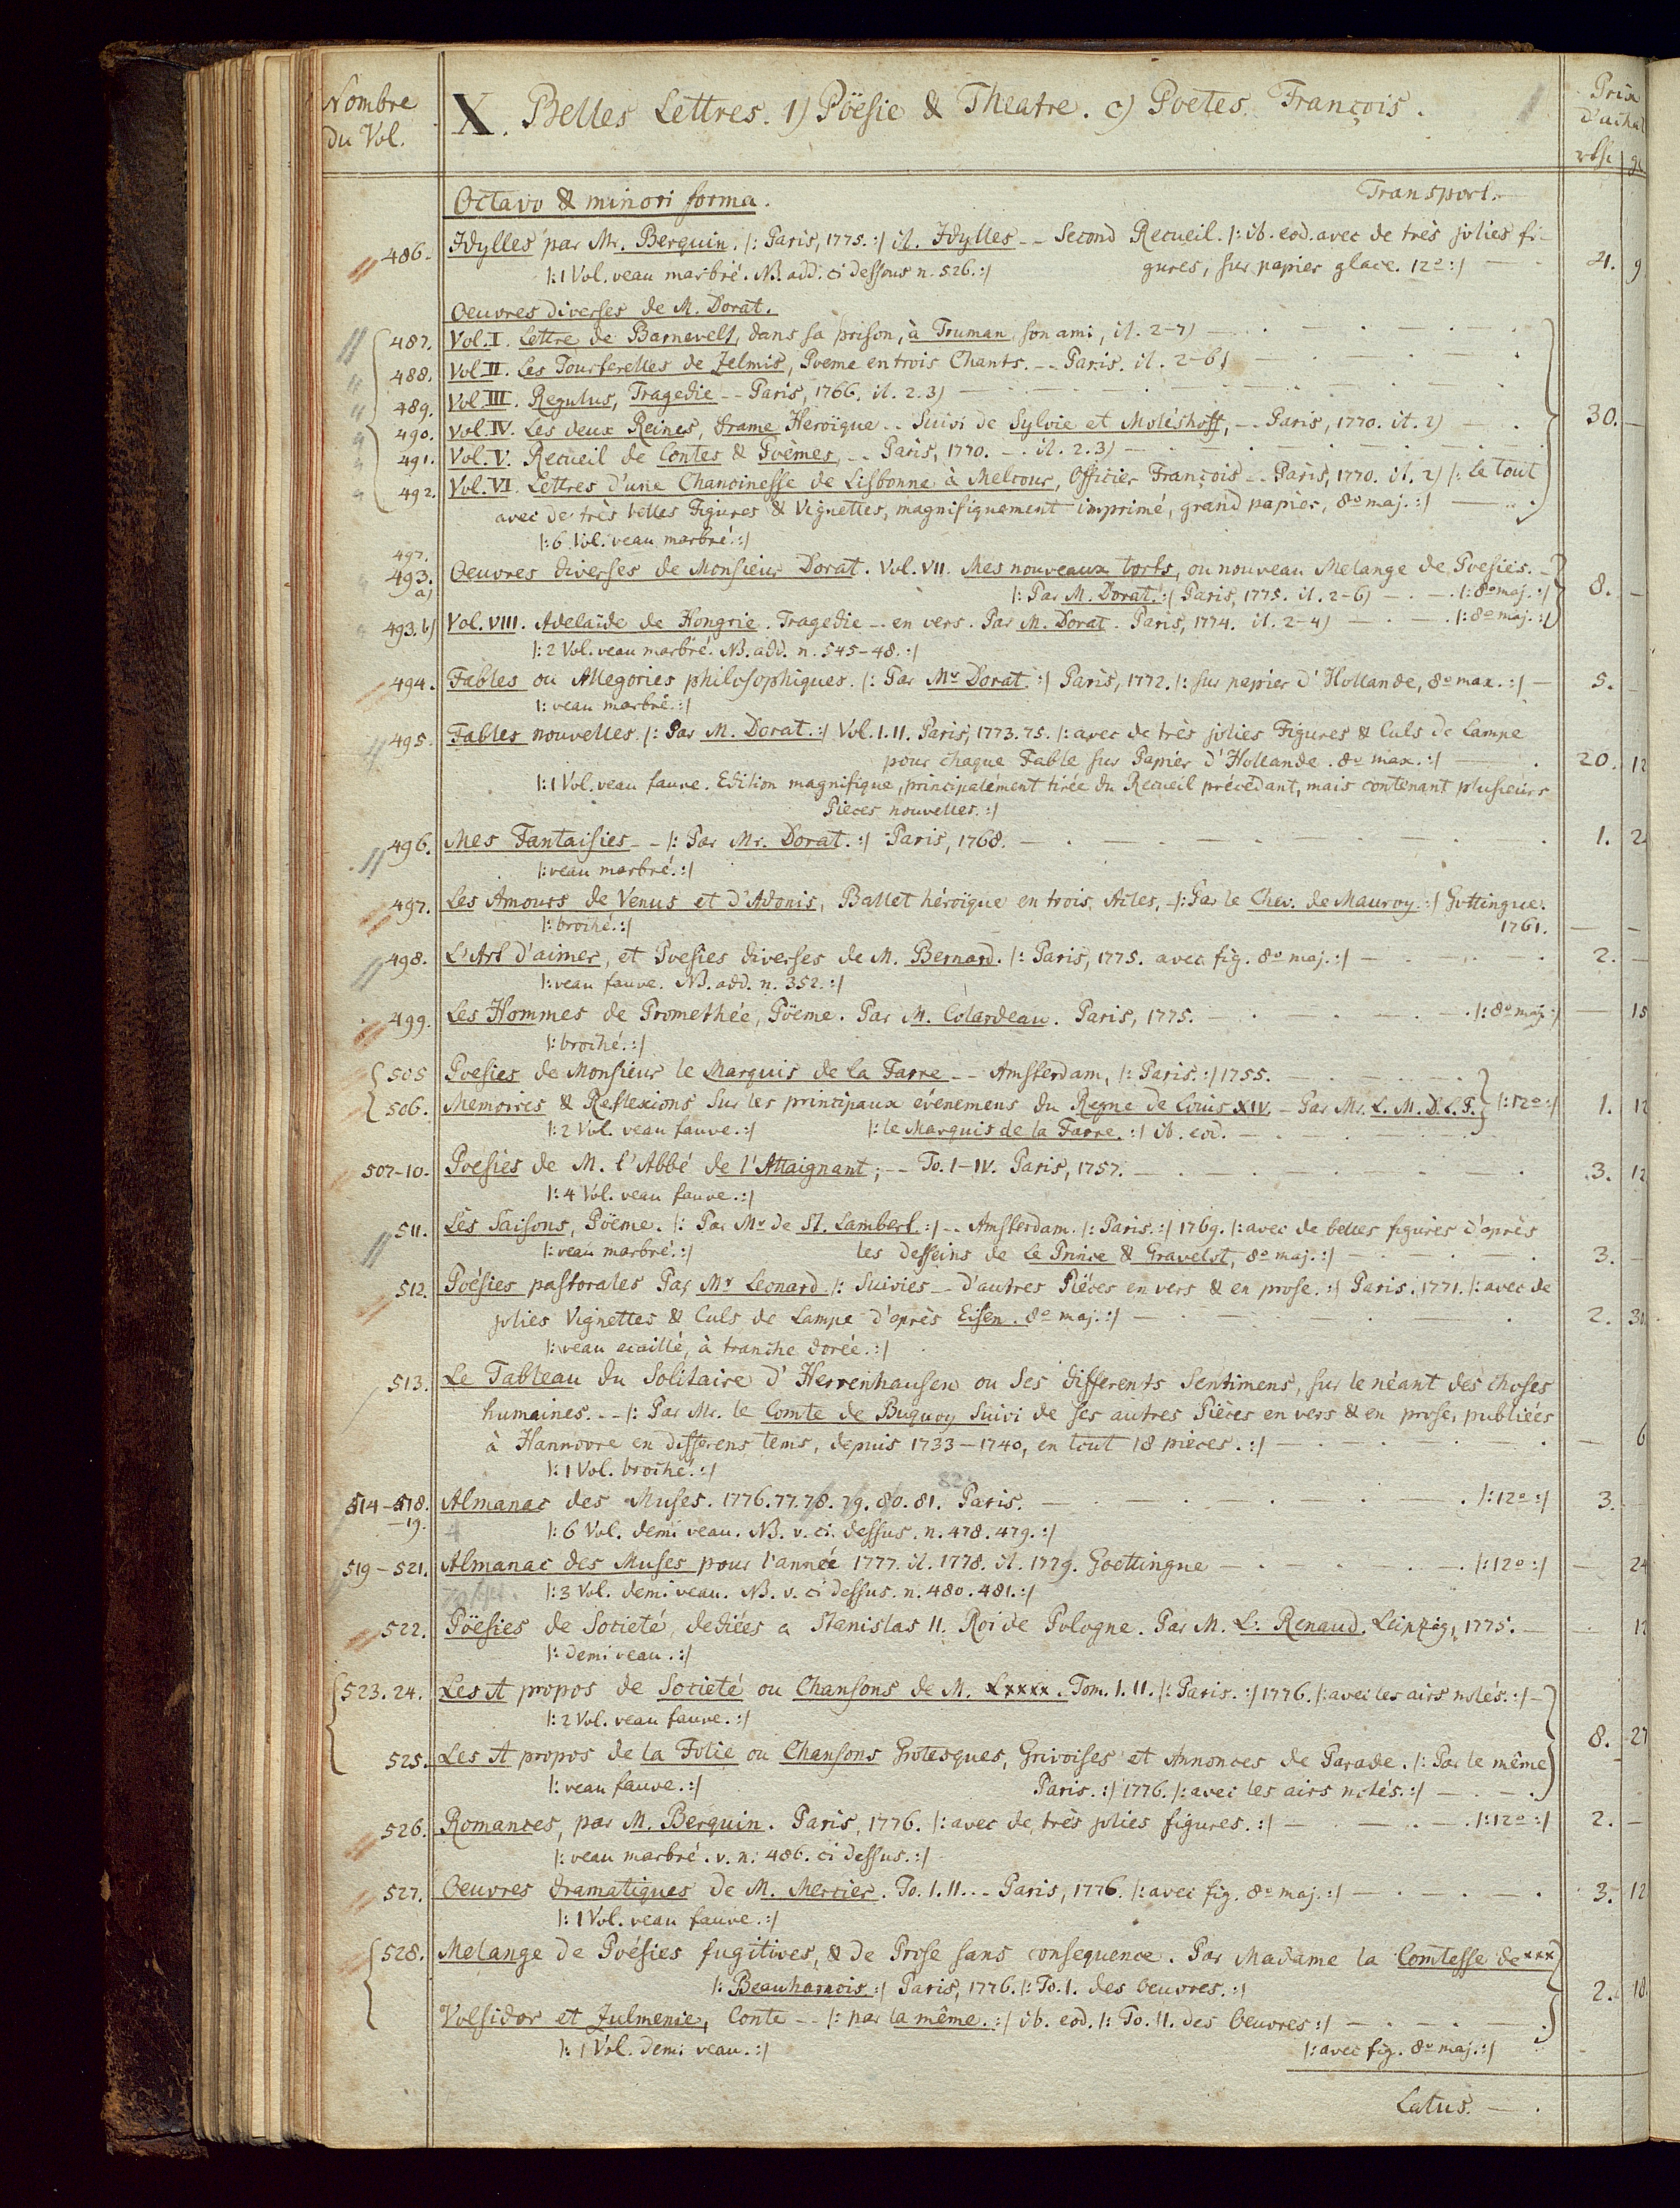 Nombre
du Vol.
X. Belles Lettres. 1) Pöesie & Theatre. c) Poetes François.
Prix
d'achat
Octavo & minori forma. Transport.
486. Idylles par Mr. Berquin. |: Paris, 1775. :| it. Idylles -- Second Recueil. |: ib. eod. avec de très jolies fi-
|: 1 Vol. veau marbré. NB. add. ci dessous n. 526. :| gures, sur papier glace. 12o :| 21. 9
Oeuvres diverses de M. Dorat.
487. Vol. I. Lettre de Barnevelt, dans sa prison, à Truman, son ami, it. 2-7)
488. Vol II. Les Tourterelles de Zelmis, Poeme en trois Chants. -- Paris. it. 2-6)
489. Vol. III. Regulus, Tragedie -- Paris, 1766. it. 2.3)
490. Vol. IV. Les deux Reines, drame Heroïque -- Suivi de Sylvie et Moléshoff, -- Paris, 1770. it. 2) 30. -
491. Vol. V. Recueil de Contes & Poëmes, -- Paris, 1770. -- it. 2.3)
492. Vol. VI. Lettres d'une Chanoinesse de Lisbonne à Melcour, Officier François -- Paris, 1770. it. 2) |: Le tout
avec de très belles Figures & Vignettes, magnifiquement imprimé, grand papier, 8o maj. :|
|: 6 Vol. veau marbré. :|
493. a) Oeuvres diverses de Monsieur Dorat. Vol. VII. Mes nouveaux torts, ou nouveau Melange de Poesies. --
|: Par M. Dorat. :| Paris, 1775. it. 2-6) |: 8o maj. :| 8. -
493. b) Vol. VIII. Adelaïde de Hongrie. Tragedie -- en vers. Par M. Dorat. Paris, 1774. it. 2-4) |: 8o maj. :|
|: 2 Vol. veau marbré. NB. add. n. 545-48. :|
494. Fables ou Allegories philosophiques. |: Par Mr Dorat. :| Paris, 1772. |: sur papier d'Hollande, 8o max. :| 5. -
|: veau marbré. :|
495. Fables nouvelles. |: Par M. Dorat. :| Vol. I. II. Paris, 1773. 75. |: avec de très jolies Figures & Culs de Lampe
pour chaque Fable sur Papier d'Hollande. 8o max. :| 20. 12
|: 1 Vol. veau fauve. Edition magnifique, principalement tirée du Recueil précedant, mais contenant plusieurs
Pieces nouvelles. :|
496. Mes Fantaisies -- |: Par Mr. Dorat. :| Paris, 1768. 1. 2
|: veau marbré. :|
497. Les Amours de Venus et d'Adonis, Ballet héroïque en trois Actes, -- |: Par le Chev. de Mauroy. :| Gottingue.
|: broché. :| 1761. - -
498. L'Art d'aimer, et Poesies diverses de M. Bernard. |: Paris, 1775. avec fig. 8o maj. :| 2. -
|: veau fauve. NB. add. n. 352. :|
499. Les Hommes de Promethée, Pöeme. Par M. Colardeau. Paris, 1775. |: 8o maj. :| - 15
|: broché. :|
505 Poesies de Monsieur le Marquis de la Farre -- Amsterdam, |: Paris. :| 1755.
506. Memoires & Reflexions sur les principaux événemens du Regne de Louis XIV. -- Par Mr. L. M. D. L. F. |: 12o :| 1. 12
|: 2 Vol. veau fauve. :| |: le Marquis de la Farre. :| ib. eod.
507-10. Poesies de M. l'Abbé de l'Attaignant, -- To. I-IV. Paris, 1757. 3. 12
|: 4 Vol. veau fauve. :|
511. Les Saisons, Pöeme. |: Par Mr de St. Lambert. :| -- Amsterdam. |: Paris. :| 1769. |: avec de belles figures d'après
|: veau marbré. :| les desseins de Le Prince & Gravelot, 8o maj. :| 3. -
512. Poésies pastorales Par Mr Leonard. |: Suivies -- d'autres Piéces en vers & en prose. :| Paris. 1771. |: avec de
jolies Vignettes & Culs de Lampe d'après Eisen. 8o maj. :| 2.
|: veau ecaillé, à tranche dorée. :|
513. Le Tableau du Solitaire d'Herrenhausen ou Ses differents Sentimens, sur le néant des choses
humaines. -- |: Par Mr. le Comte de Buquoy suivi de ses autres Pièces en vers & en prose, publiées
à Hannovre en differens tems, depuis 1733-1740, en tout 18 pieces. :| - 6
|: 1 Vol. broché. :|
82.
514-518. Almanac des Muses. 1776. 77. 78. 79. 80. 81. Paris. |: 12o :| 3. -
-19. |: 6 Vol. demi veau. NB. v. ci dessus. n. 478. 479. :|
519-521. Almanac des Muses pour l'année 1777. it. 1778. it. 1779. Goettingue |: 12o :| - 24
|: 3 Vol. demi veau. NB. v. ci dessus. n. 480. 481. :|
522. Pöesies de Societé, dediées a Stanislas II. Roi de Pologne. Par M. L: Renaud. Leipzig, 1775. - 12
|: demi veau. :|
523. 24. Les A propos de Societé ou Chansons de M. Lxxxx. Tom. I. II. |: Paris. :| 1776. |: avec les airs notés. :|
|: 2 Vol. veau fauve. :| 8. 27
525. Les A propos de la Folie ou Chansons Grotesques, Grivoises et Annonces de Parade. |: Par le même
|: veau fauve. :| Paris. :| 1776. |: avec les airs notés. :|
526. Romances, par M. Berquin. Paris, 1776. |: avec de très jolies figures. :| |: 12o :| 2. -
|: veau marbré. v. n. 486. ci dessus. :|
527. Oeuvres dramatiques de M. Mercier. To. I. II. -- Paris, 1776. |: avec fig. 8o maj. :| 3. 12
|: 1 Vol. veau fauve. :|
528. Melange de Poésies fugitives, & de Prose sans consequence. Par Madame la Comtesse de xxx
|: Beauharnois. :| Paris, 1776. |: To. I. des Oeuvres. :| 2. 18
Volsidor et Zulmenie, Conte -- |: par la même. :| ib. eod. |: To. II. des Oeuvres :|
|: 1 Vol. demi veau. :| |: avec fig. 8o maj. :|
Latus.